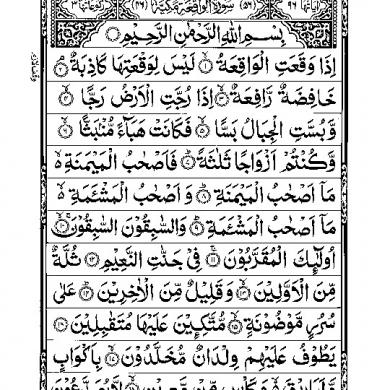 اٰیَاتُهَا ٩٦ (٥٦) سُوْرَةُ الْوَاقِعَةِ مَكِّیَّةٌ (٤٦) رُكُوْعَاتُهَا ٣
بِسْمِ اللّٰهِ الرَّحْمٰنِ الرَّحِیْمِ
اِذَا وَقَعَتِ الْوَاقِعَةُ ۙ﴿١﴾ لَیْسَ لِوَقْعَتِهَا كَاذِبَةٌ ۘ﴿٢﴾
خَافِضَةٌ رَّافِعَةٌ ۙ﴿٣﴾ اِذَا رُجَّتِ الْاَرْضُ رَجًّا ۙ﴿٤﴾
وَّ بُسَّتِ الْجِبَالُ بَسًّا ۙ﴿٥﴾ فَكَانَتْ هَبَآءً مُّنْۢبَثًّا ۙ﴿٦﴾
وَّ كُنْتُمْ اَزْوَاجًا ثَلٰثَةً ؕ﴿٧﴾ فَاَصْحٰبُ الْمَیْمَنَةِ ۙ۬
مَاۤ اَصْحٰبُ الْمَیْمَنَةِ ؕ﴿٨﴾ وَ اَصْحٰبُ الْمَشْـَٔمَةِ ۙ۬
مَاۤ اَصْحٰبُ الْمَشْـَٔمَةِ ؕ﴿٩﴾ وَ السّٰبِقُوْنَ السّٰبِقُوْنَ ۚۙ﴿١٠﴾
اُولٰٓىِٕكَ الْمُقَرَّبُوْنَ ۚ﴿١١﴾ فِیْ جَنّٰتِ النَّعِیْمِ ﴿١٢﴾ ثُلَّةٌ
مِّنَ الْاَوَّلِیْنَ ۙ﴿١٣﴾ وَ قَلِیْلٌ مِّنَ الْاٰخِرِیْنَ ؕ﴿١٤﴾ عَلٰی
سُرُرٍ مَّوْضُوْنَةٍ ۙ﴿١٥﴾ مُّتَّكِـِٕیْنَ عَلَیْهَا مُتَقٰبِلِیْنَ ﴿١٦﴾
یَطُوْفُ عَلَیْهِمْ وِلْدَانٌ مُّخَلَّدُوْنَ ۙ﴿١٧﴾ بِاَكْوَابٍ